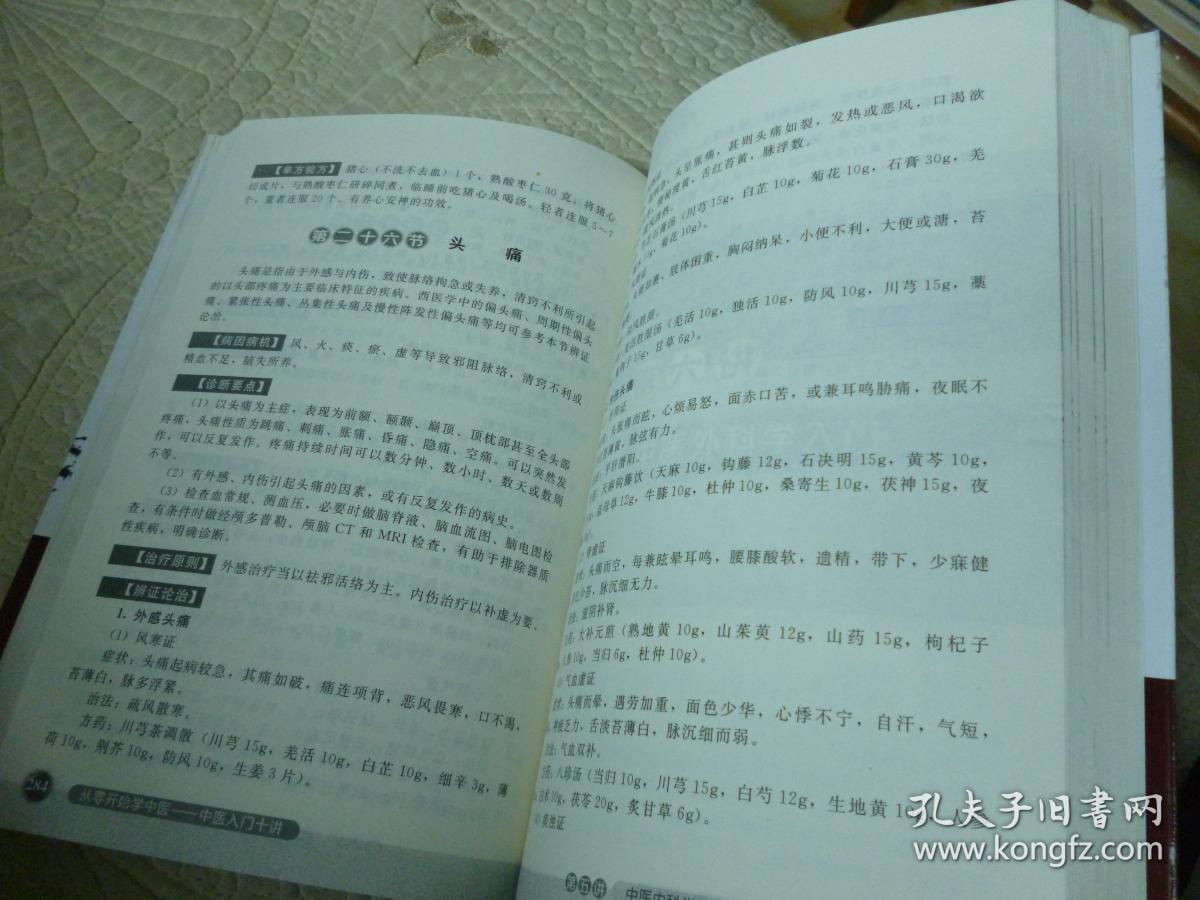 【单方验方】 猪心（不洗不去血）1个，熟酸枣仁30克。将猪心
切成片，与熟酸枣仁研碎同煮，临睡前吃猪心及喝汤。轻者连服5～7
个，重者连服20个。有养心安神的功效。
第二十六节 头 痛
头痛是指由于外感与内伤，致使脉络拘急或失养，清窍不利所引起
的以头部疼痛为主要临床特征的疾病。西医学中的偏头痛、周期性偏头
痛、紧张性头痛、丛集性头痛及慢性阵发性偏头痛等均可参考本节辨证
论治。
【病因病机】 风、火、痰、瘀、虚等导致邪阻脉络，清窍不利或
精血不足，脑失所养。
【诊断要点】
（1）以头痛为主症，表现为前额、额颞、巅顶、顶枕部甚至全头部
疼痛，头痛性质为跳痛、刺痛、胀痛、昏痛、隐痛、空痛。可以突然发
作，可以反复发作。疼痛持续时间可以数分钟、数小时、数天或数周
不等。
（2）有外感、内伤引起头痛的因素，或有反复发作的病史。
（3）检查血常规、测血压，必要时做脑脊液、脑血流图、脑电图检
查，有条件时做经颅多普勒、颅脑CT和MRI检查，有助于排除器质
性疾病，明确诊断。
【治疗原则】 外感治疗当以祛邪活络为主。内伤治疗以补虚为要。
【辨证论治】
1. 外感头痛
（1）风寒证
症状：头痛起病较急，其痛如破，痛连项背，恶风畏寒，口不渴，
苔薄白，脉多浮紧。
治法：疏风散寒。
方药：川芎茶调散（川芎15g，羌活10g，白芷10g，细辛3g，薄
荷10g，荆芥10g，防风10g，生姜3片）。
284
从零开始学中医——中医入门十讲
，头呈胀痛，甚则头痛如裂，发热或恶风，口渴欲
，便秘溲黄，舌红苔黄，脉浮数。
风清热。
石膏汤（川芎15g，白芷10g，菊花10g，石膏30g，羌
10g，菊花10g）。
，肢体困重，胸闷纳呆，小便不利，大便或溏，苔
风胜湿。
胜湿汤（羌活10g，独活10g，防风10g，川芎15g，藁
子15g，甘草6g）。
头痛
证
头胀痛而眩，心烦易怒，面赤口苦，或兼耳鸣胁痛，夜眠不
薄黄，脉弦有力。
平肝潜阳。
天麻钩藤饮（天麻10g，钩藤12g，石决明15g，黄芩10g，
益母草12g，牛膝10g，杜仲10g，桑寄生10g，茯神15g，夜
虚证
头痛而空，每兼眩晕耳鸣，腰膝酸软，遗精，带下，少寐健
少苔，脉沉细无力。
法：滋阴补肾。
药：大补元煎（熟地黄10g，山茱萸12g，山药15g，枸杞子
人参10g，当归6g，杜仲10g）。
气血虚证
状：头痛而晕，遇劳加重，面色少华，心悸不宁，自汗，气短，
神疲乏力，舌淡苔薄白，脉沉细而弱。
法：气血双补。
方药：八珍汤（当归10g，川芎15g，白芍12g，生地黄1
白术10g，茯苓20g，炙甘草6g）。
痰浊证
第五讲 中医内科学
孔夫子旧书网
www.kongfz.com